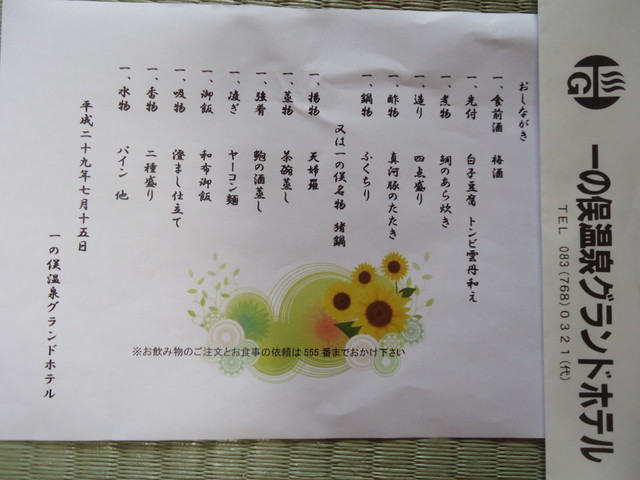 おしながき
一、食前酒 梅酒
一、先付 白子豆腐 トンビ雲丹和え
一、煮物 鯛のあら炊き
一、造り 四点盛り
一、酢物 真河豚のたたき
一、鍋物 ふくちり
又は一の俣名物 猪鍋
一、揚物 天婦羅
一、蒸物 茶碗蒸し
一、強肴 鮑の酒蒸し
一、凌ぎ ヤーコン麺
一、御飯 和布御飯
一、吸物 澄まし仕立て
一、香物 二種盛り
一、水物 パイン 他
平成二十九年七月十五日
一の俣温泉グランドホテル
※お飲み物のご注文とお食事の依頼は555番までおかけ下さい
G
一の俣温泉グランドホテル
TEL 083(768)0321(代)